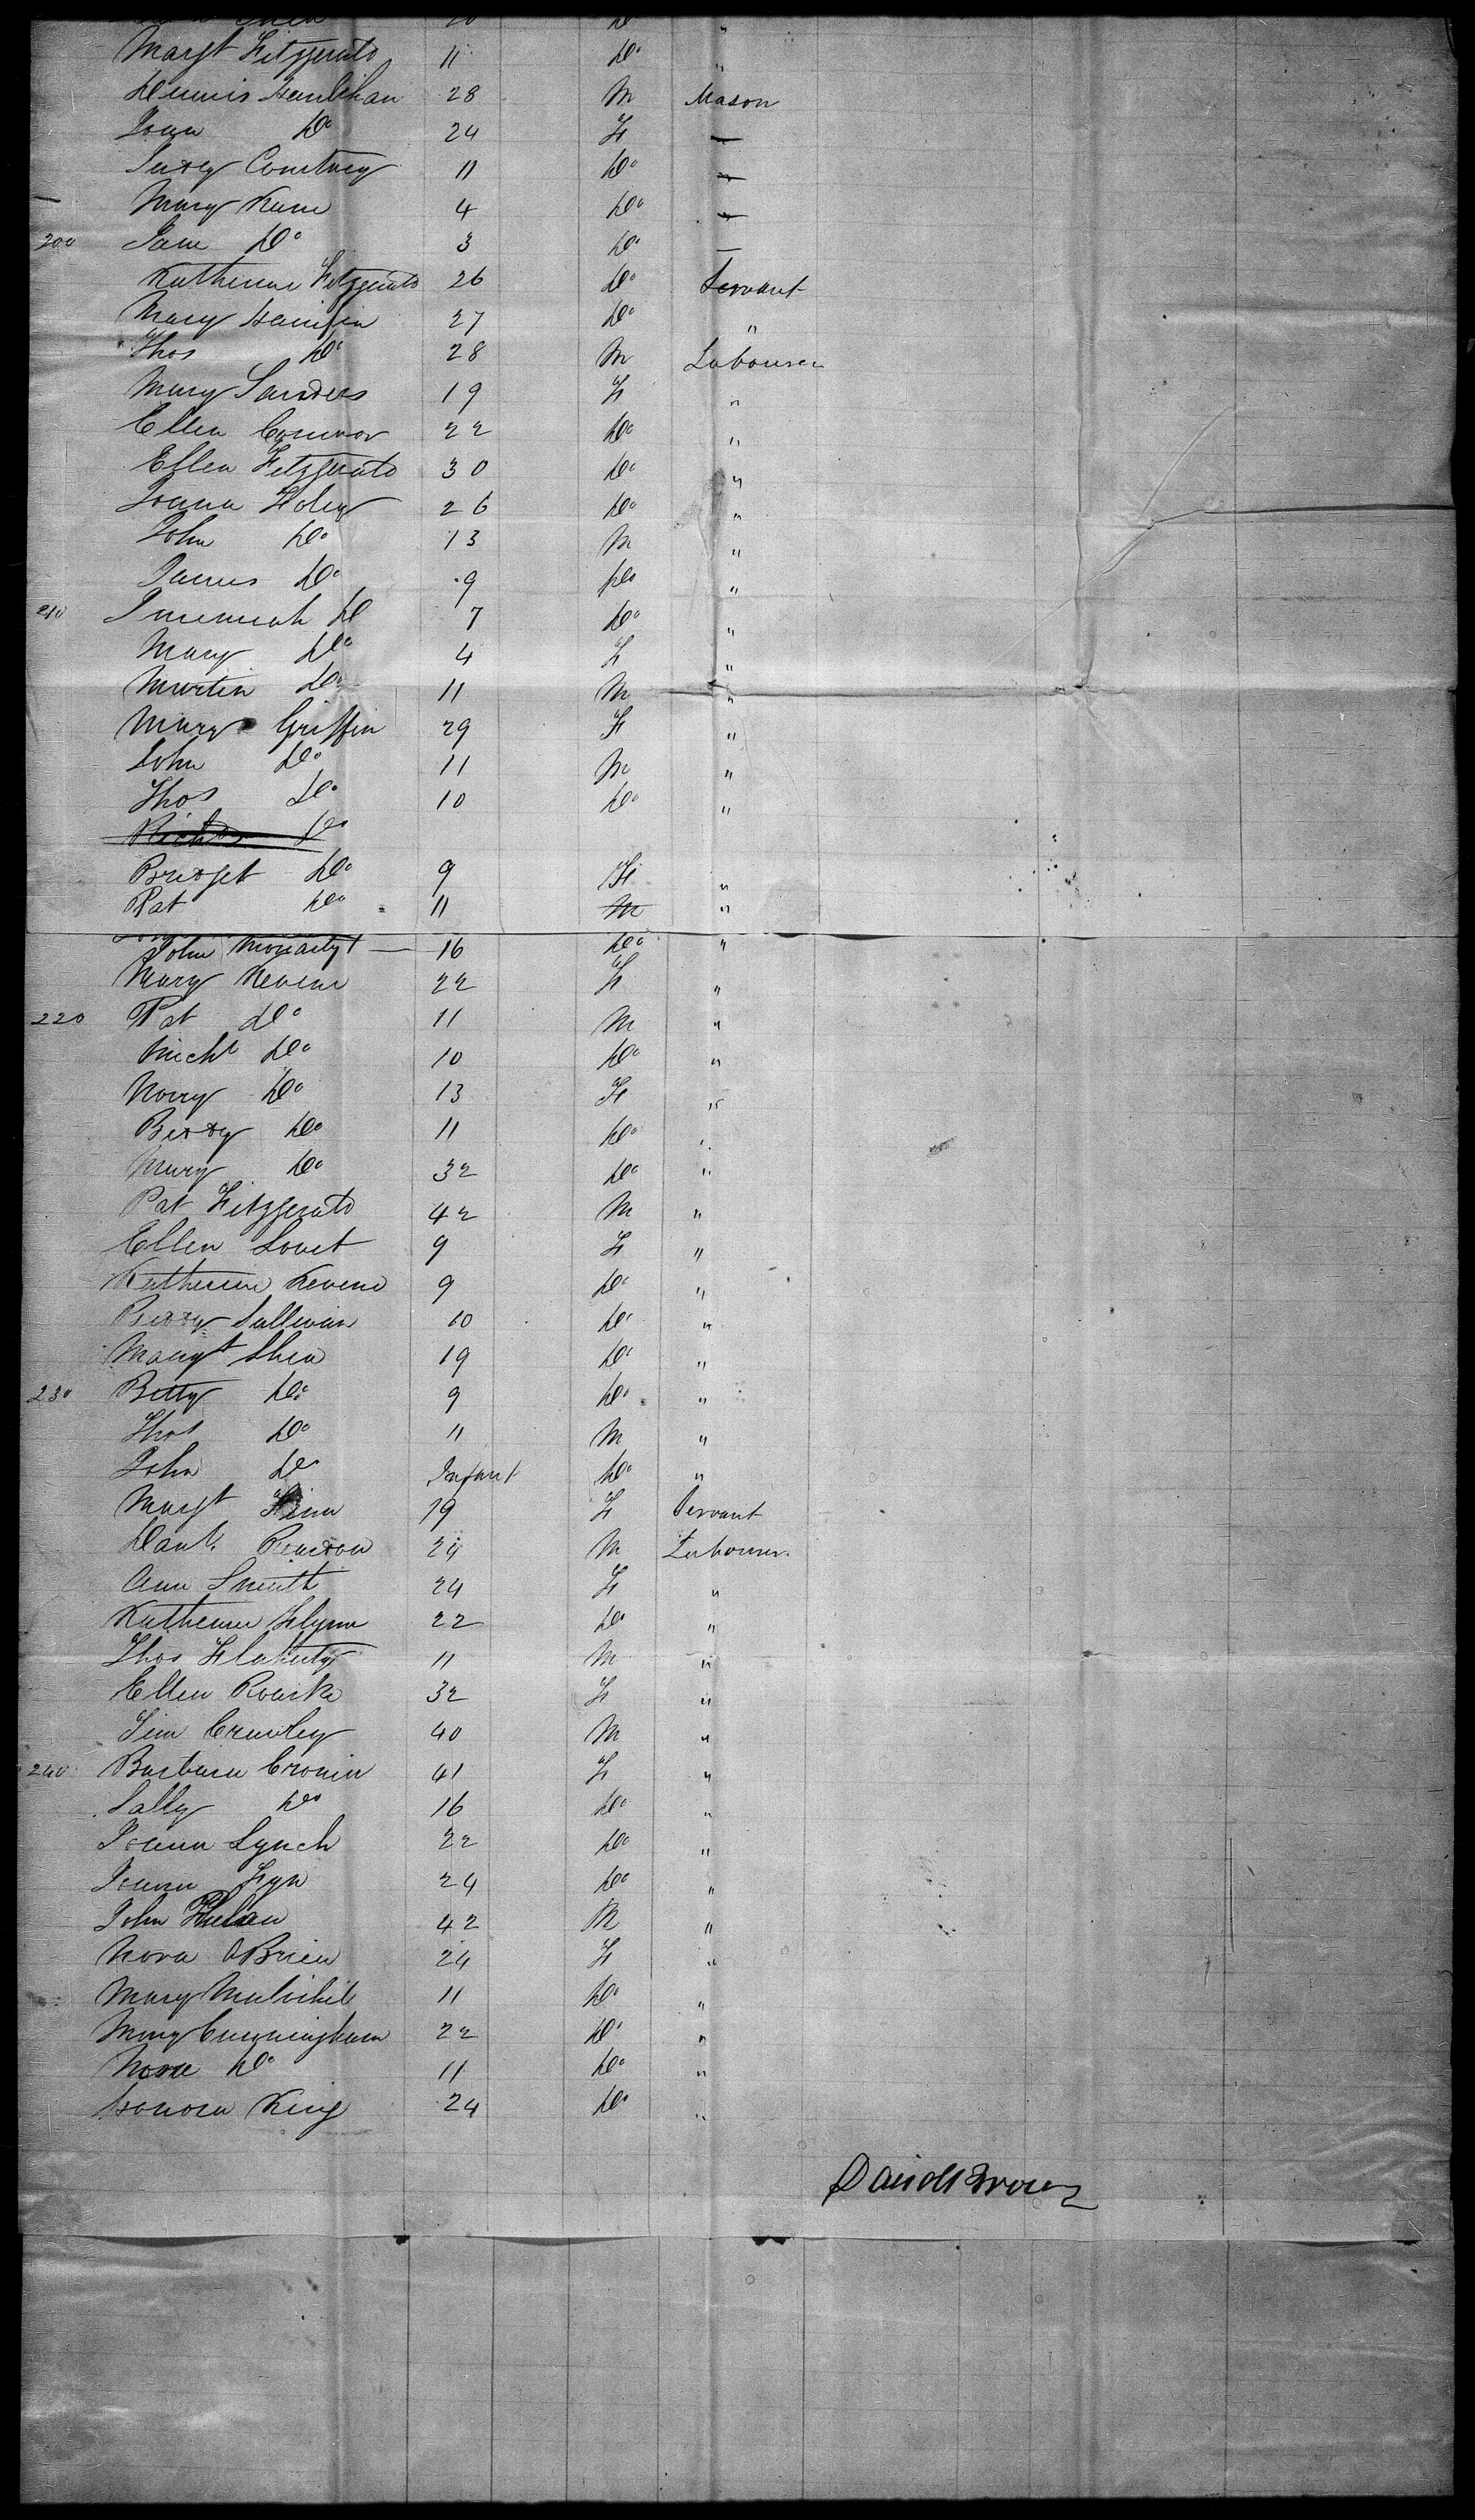 Margt Fitzgerald 11 Do "
Dennis Hanlihan 28 M Mason
Joan Do 24 F —
Judy Courtney 11 Do —
Mary Kane 4 Do —
200 Jane Do 3 Do —
Katherine Fitzgerald 26 Do Servant
Mary 27 Do "
Thos Do 28 M Labourer
Mary Sanders 19 F "
Ellen Connor 22 Do "
Ellen Fitzgerald 30 Do "
Joana Foley 26 Do "
John Do 13 M "
James Do 9 Do "
210 Jeremiah Do 7 Do "
Mary Do 4 F "
Martin Do 11 M "
Mary Griffin 29 F "
John Do 11 M "
Thos Do 10 Do "
Richd Do
Bridget Do 9 F "
Pat Do 11 M "
John Moriarty 16 Do "
Mary Kevene 22 F "
220 Pat Do 11 M "
Michl Do 10 Do "
Norry Do 13 F "
Betty Do 11 Do "
Mary Do 32 Do "
Pat Fitzgerald 42 M "
Ellen Lovet 9 F "
Katherine Kevene 9 Do "
Betty Sullivan 10 Do "
Margt Shea 19 Do "
230 Betty Do 9 Do "
Thos Do 11 M "
John Do Infant Do "
Margt Finn 19 F Servant
Danl. 24 M Labourer
Ann Smith 24 F "
Katherine Flynn 22 Do "
Thos Flaherty 11 M "
Ellen Rourke 32 F "
Tim Crowley 40 M "
240 Barbara Cronin 41 F "
Sally Do 16 Do "
Joana Lynch 22 Do "
Joana Fyn 24 Do "
John Phelan 42 M "
Nora OBrien 24 F "
Mary Mulvihil 11 Do "
Mary Cunningham 22 Do "
Nora Do 11 Do "
Honora King 24 Do "
David Brown